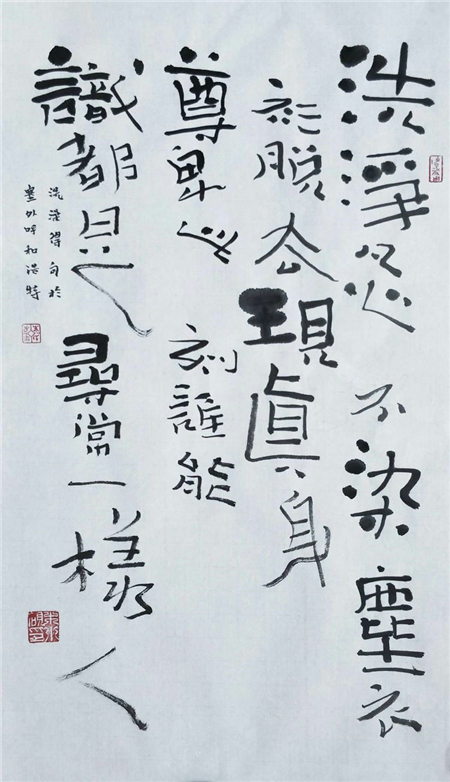 洗淨凡心不染塵衣
衫脫去現眞身
尊卑此刻誰能
識都是尋常一樣人
洗澡得句於
塞外呼和浩特